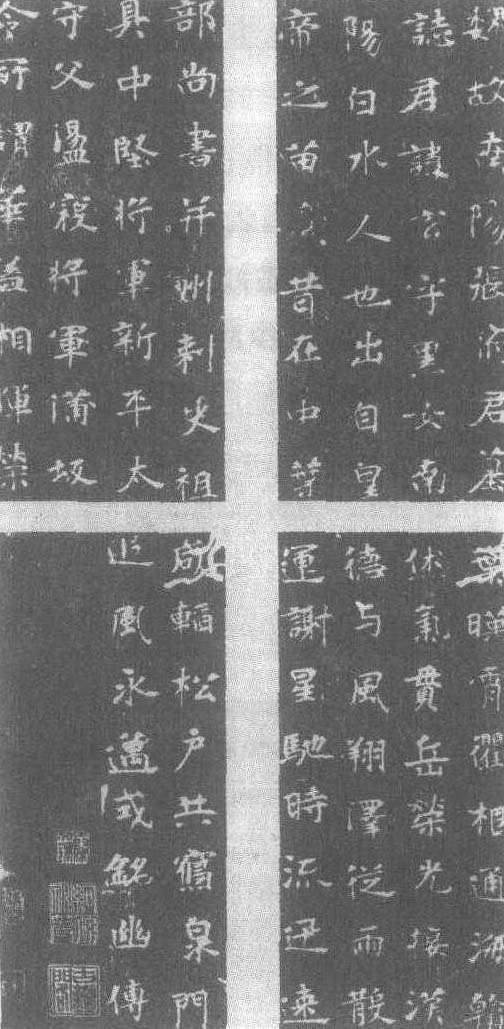 魏故南陽張府君墓
誌君諱玄字黑女南
陽白水人也出自皇
帝之苗裔昔在中葉
部尚書并州刾史祖
具中堅將軍新平太
守父盪寇將軍蒲坂
令所謂華蓋相暉榮
葉映霄衢根通海翰
休氣貫岳榮光接漢
德与風翔澤從雨散
運謝星馳時流迅速
咸韜松戶共寢泉門
追風永邁式銘幽傳